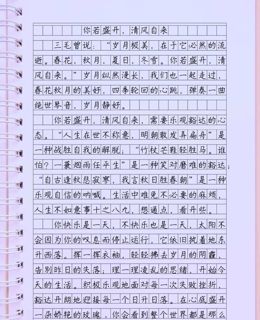 你若盛开，清风自来
三毛曾说：“岁月极美，在于它必然的流
逝。春花，秋月，夏日，冬雪。你若盛开，清风
自来。”岁月纵然漫长，我们也一起走过，
春花秋月的美好，四季轮回的心跳，弹奏一曲
绝世琴音，岁月静好。
你若盛开，清风自来，需要乐观豁达的心
态。“人生在世不称意，明朝散发弄扁舟”是一
种战胜自我的解脱，“竹杖芒鞋轻胜马，谁
怕？一蓑烟雨任平生”是一种笑对磨难的豁达，
“自古逢秋悲寂寥，我言秋日胜春朝”是一种
乐观自信的呐喊。生活中难免不必要的麻烦，
人生不如意事十之八九，想通点，看开些。
你快乐是一天，不快乐也是一天，太阳不
会因为你的叹息而停止运行，它依旧执着地东
升西落。挥一挥衣袖，轻轻拂去岁月的阴霾，
告别昨日的失落；理一理凌乱的思绪，开始今
天的生活。积极乐观地面对每一次失败挫折，
豁达开朗地迎接每一个日升日落。在心底盛开
一朵娇艳的玫瑰，你会看到整个世界都是